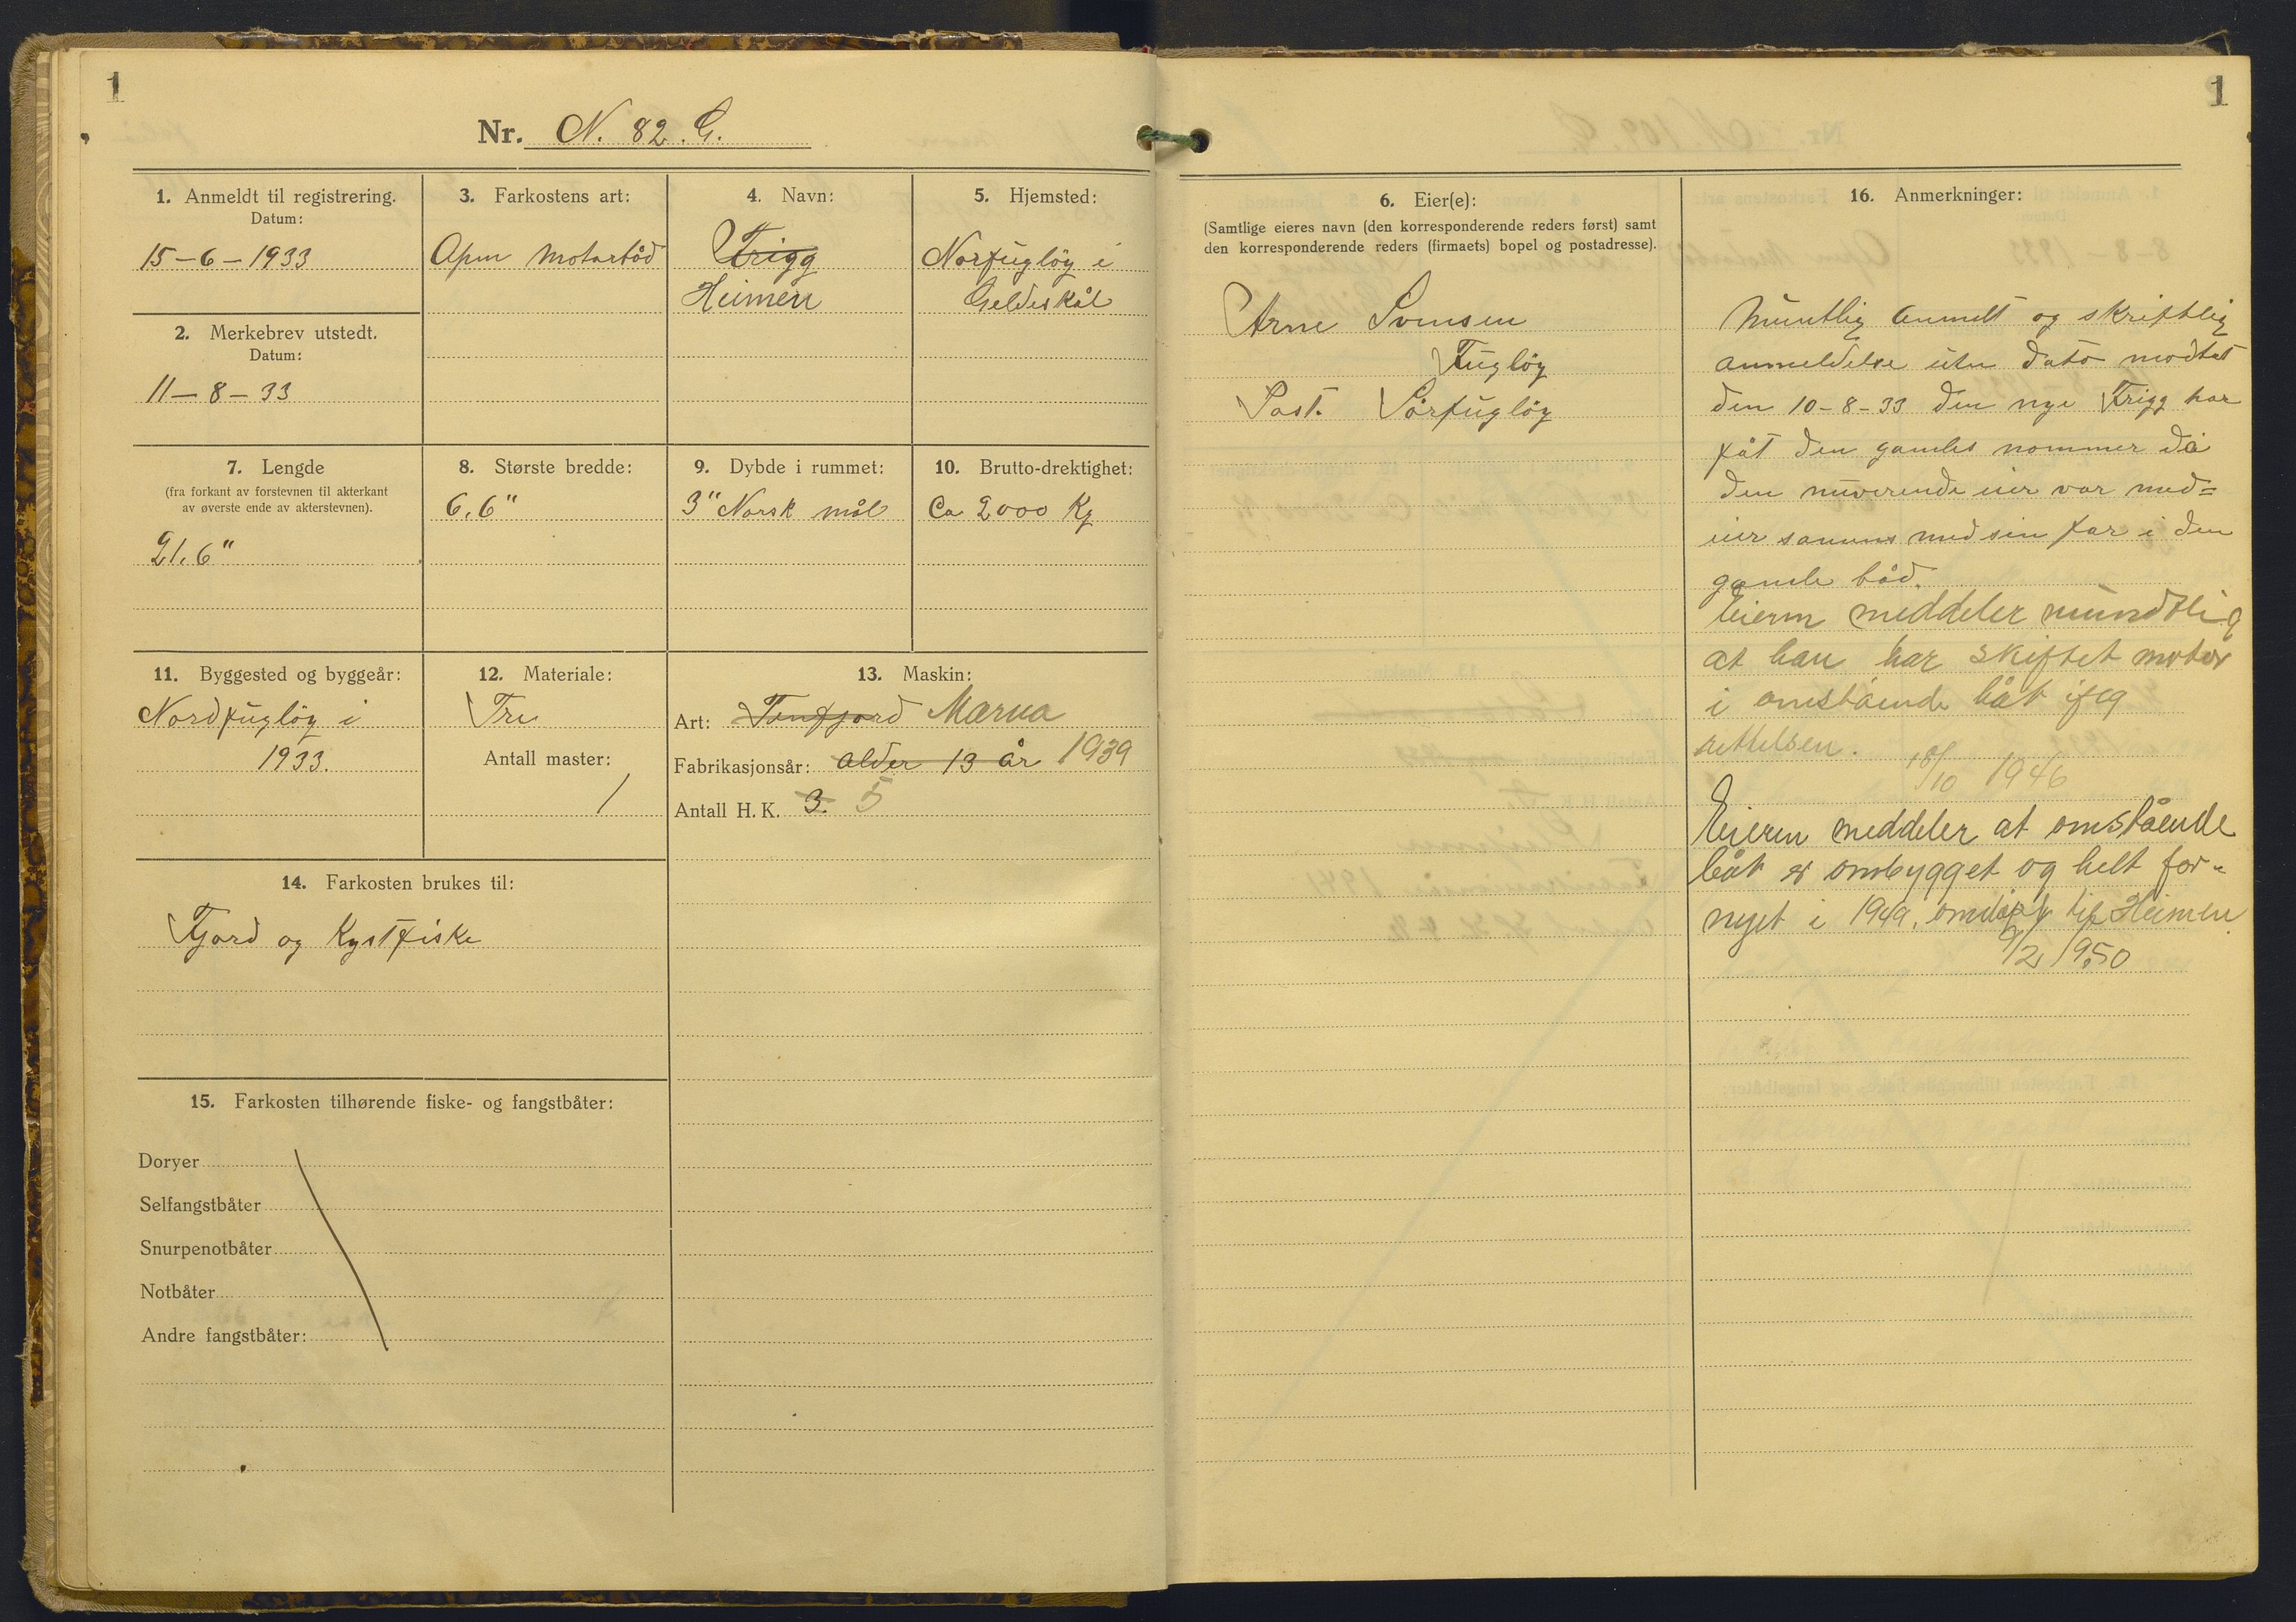 1
Nr. N. 82. G.
1. Anmeldt til registrering.
Datum:
15-6-1933
2. Merkebrev utstedt.
Datum:
11-8-33
3. Farkostens art:
Apen Motorbåd
4. Navn:
Trigg
Heimen
5. Hjemsted:
Norfugløy i
Geldeskål
7. Lengde
(fra forkant av forstevnen til akterkant
av øverste ende av akterstevnen).
21,6"
8. Største bredde:
6,6"
9. Dybde i rummet:
3" Norsk mål
10. Brutto-drektighet:
Ca 2000 Kg
11. Byggested og byggeår:
Nordfugløy i
1933.
12. Materiale:
Tre
Antall master:
1
13. Maskin:
Art: Tenfjord Marna
Fabrikasjonsår: alder 13 år 1939
Antall H. K. 3. 5
14. Farkosten brukes til:
Fjord og Kystfiske
15. Farkosten tilhørende fiske- og fangstbåter:
Doryer
Selfangstbåter
Snurpenotbåter
Notbåter
Andre fangstbåter:
1
6. Eier(e):
(Samtlige eieres navn (den korresponderende reders først) samt
den korresponderende reders (firmaets) bopel og postadresse).
Arne Svensen
Fugløy
Post. Sörfugløy
16. Anmerkninger:
Muntlig anmelt og skriftlig
anmeldelse uten dato modtat
den 10-8-33 den nye Trigg har
fåt den gamles nommer då
den nuverende eier var med=
eier samens med sin far i den
gamle båd.
Eieren meddeler mundtlig
at han har skiftet motor
i omstående båt iføg
rettelsen.
18/10 1946
Eieren meddeler at omstående
båt er ombygget og helt for-
nyet i 1949, omdøpt til Heimen
9/2 1950